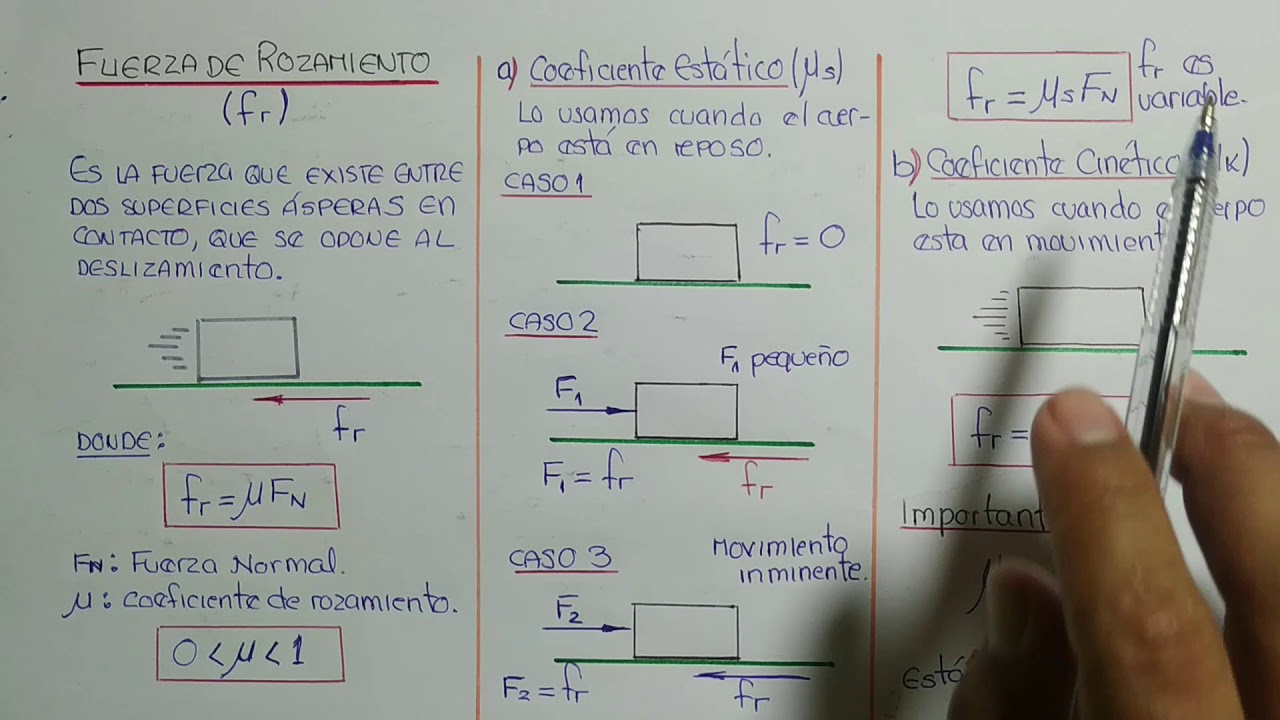 FUERZA DE ROZAMIENTO
(fr)
ES LA FUERZA QUE EXISTE ENTRE
DOS SUPERFICIES ÁSPERAS EN
CONTACTO, QUE SE OPONE AL
DESLIZAMIENTO.
fr
DONDE:
fr = μFN
FN: Fuerza Normal.
μ: coeficiente de rozamiento.
0 < μ < 1
a) Coeficiente Estático (μs)
Lo usamos cuando el cuer-
po está en reposo.
CASO 1
fr = 0
CASO 2
F1 pequeño
F1
F1 = fr
fr
CASO 3
Movimiento
inminente.
F2
F2 = fr
fr
fr = μsFN
fr es
variable.
b) Coeficiente Cinético
Lo usamos cuando
esta en
fr =